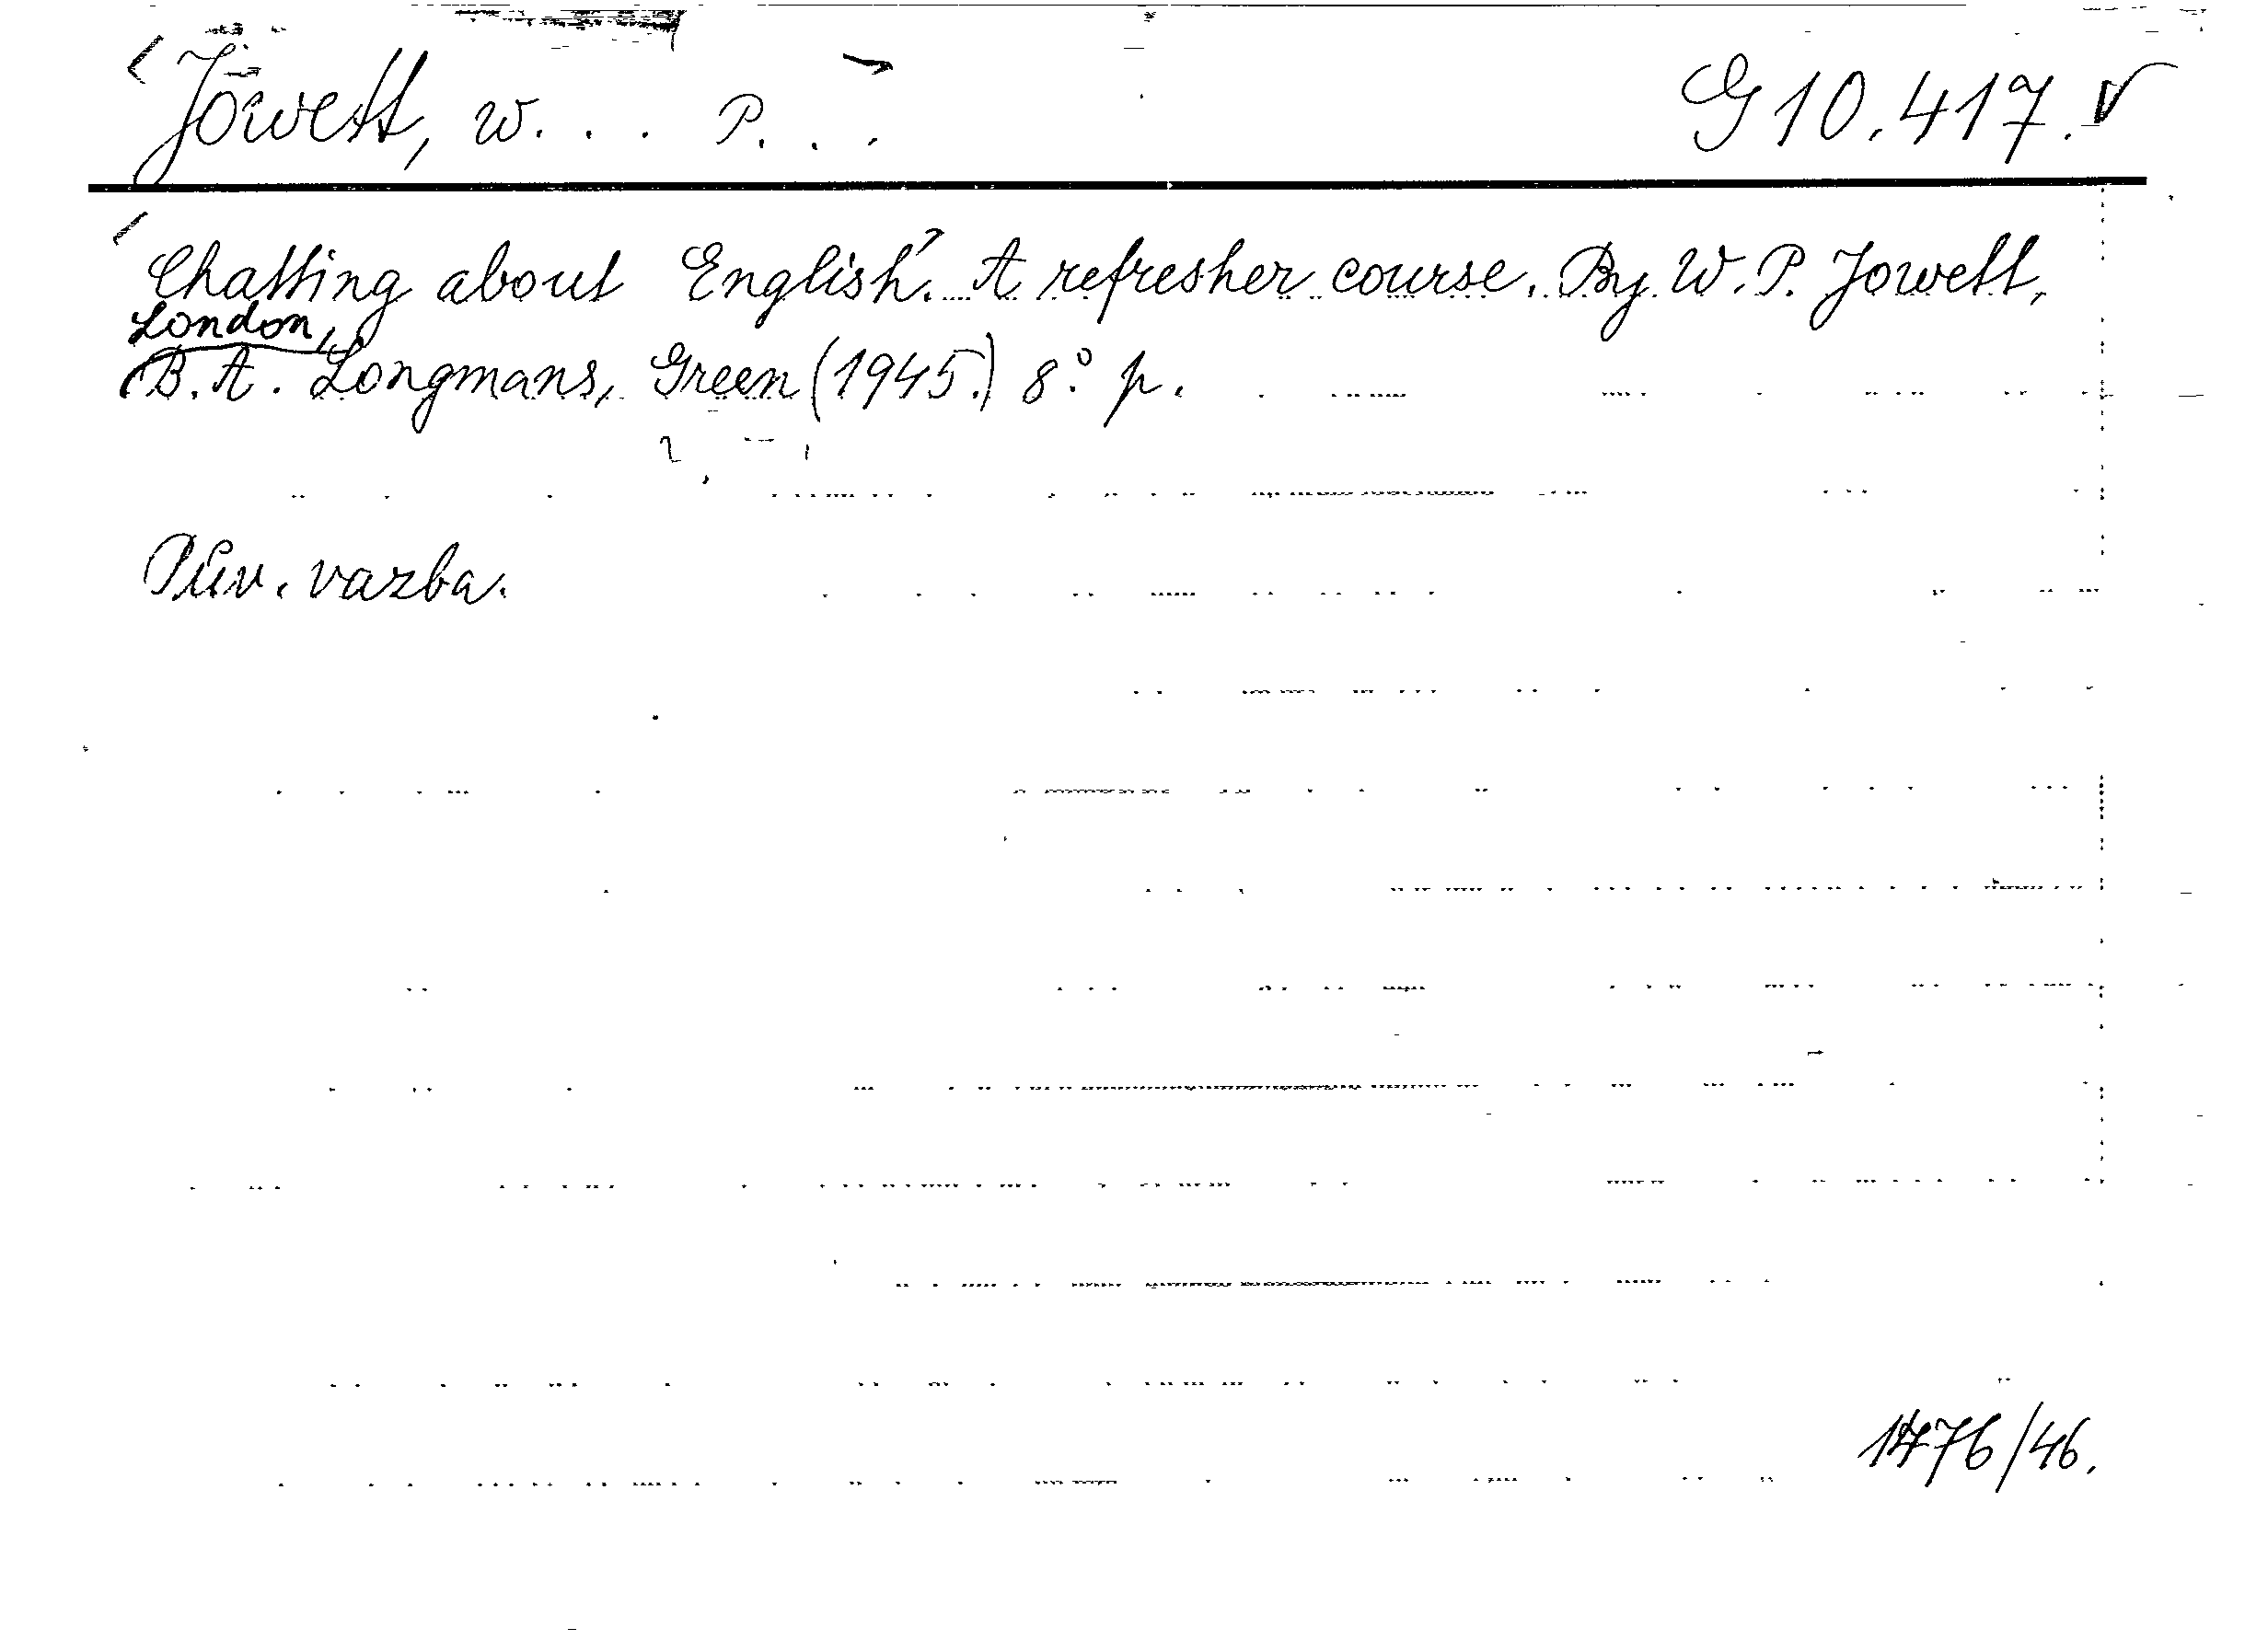 Jowett, W... P... G 10.417.
Chatting about English. A refresher course. By W. P. Jowett,
London,
B. A. Longmans, Green (1945.) 8° p.
Pův. vazba.
/46.